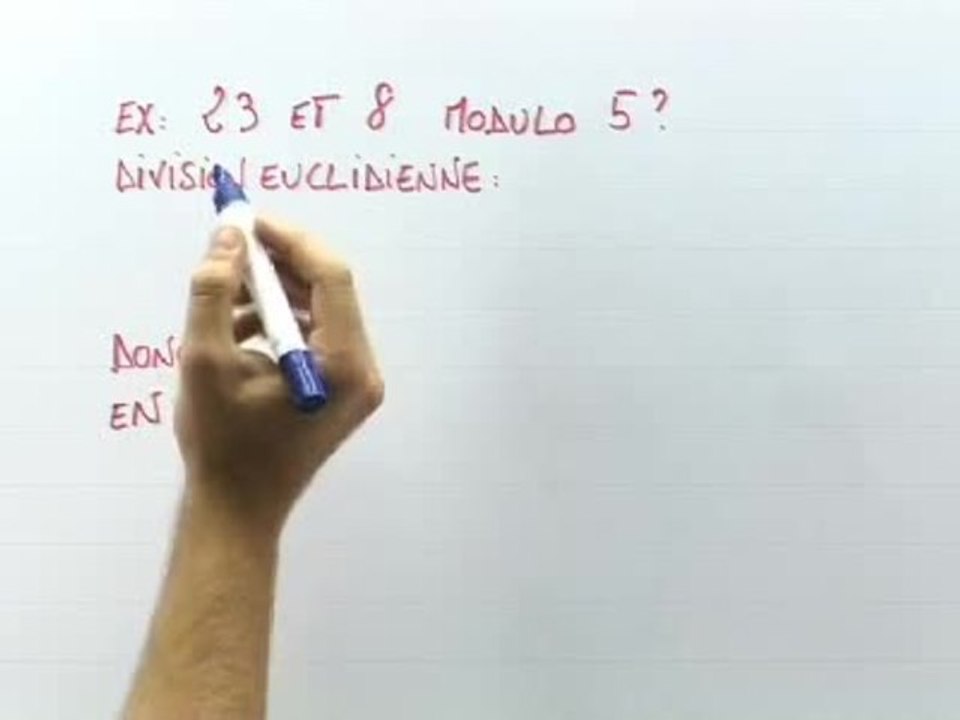 EX: 23 ET 8 MODULO 5?
DIVISION EUCLIDIENNE:
DONC
EN